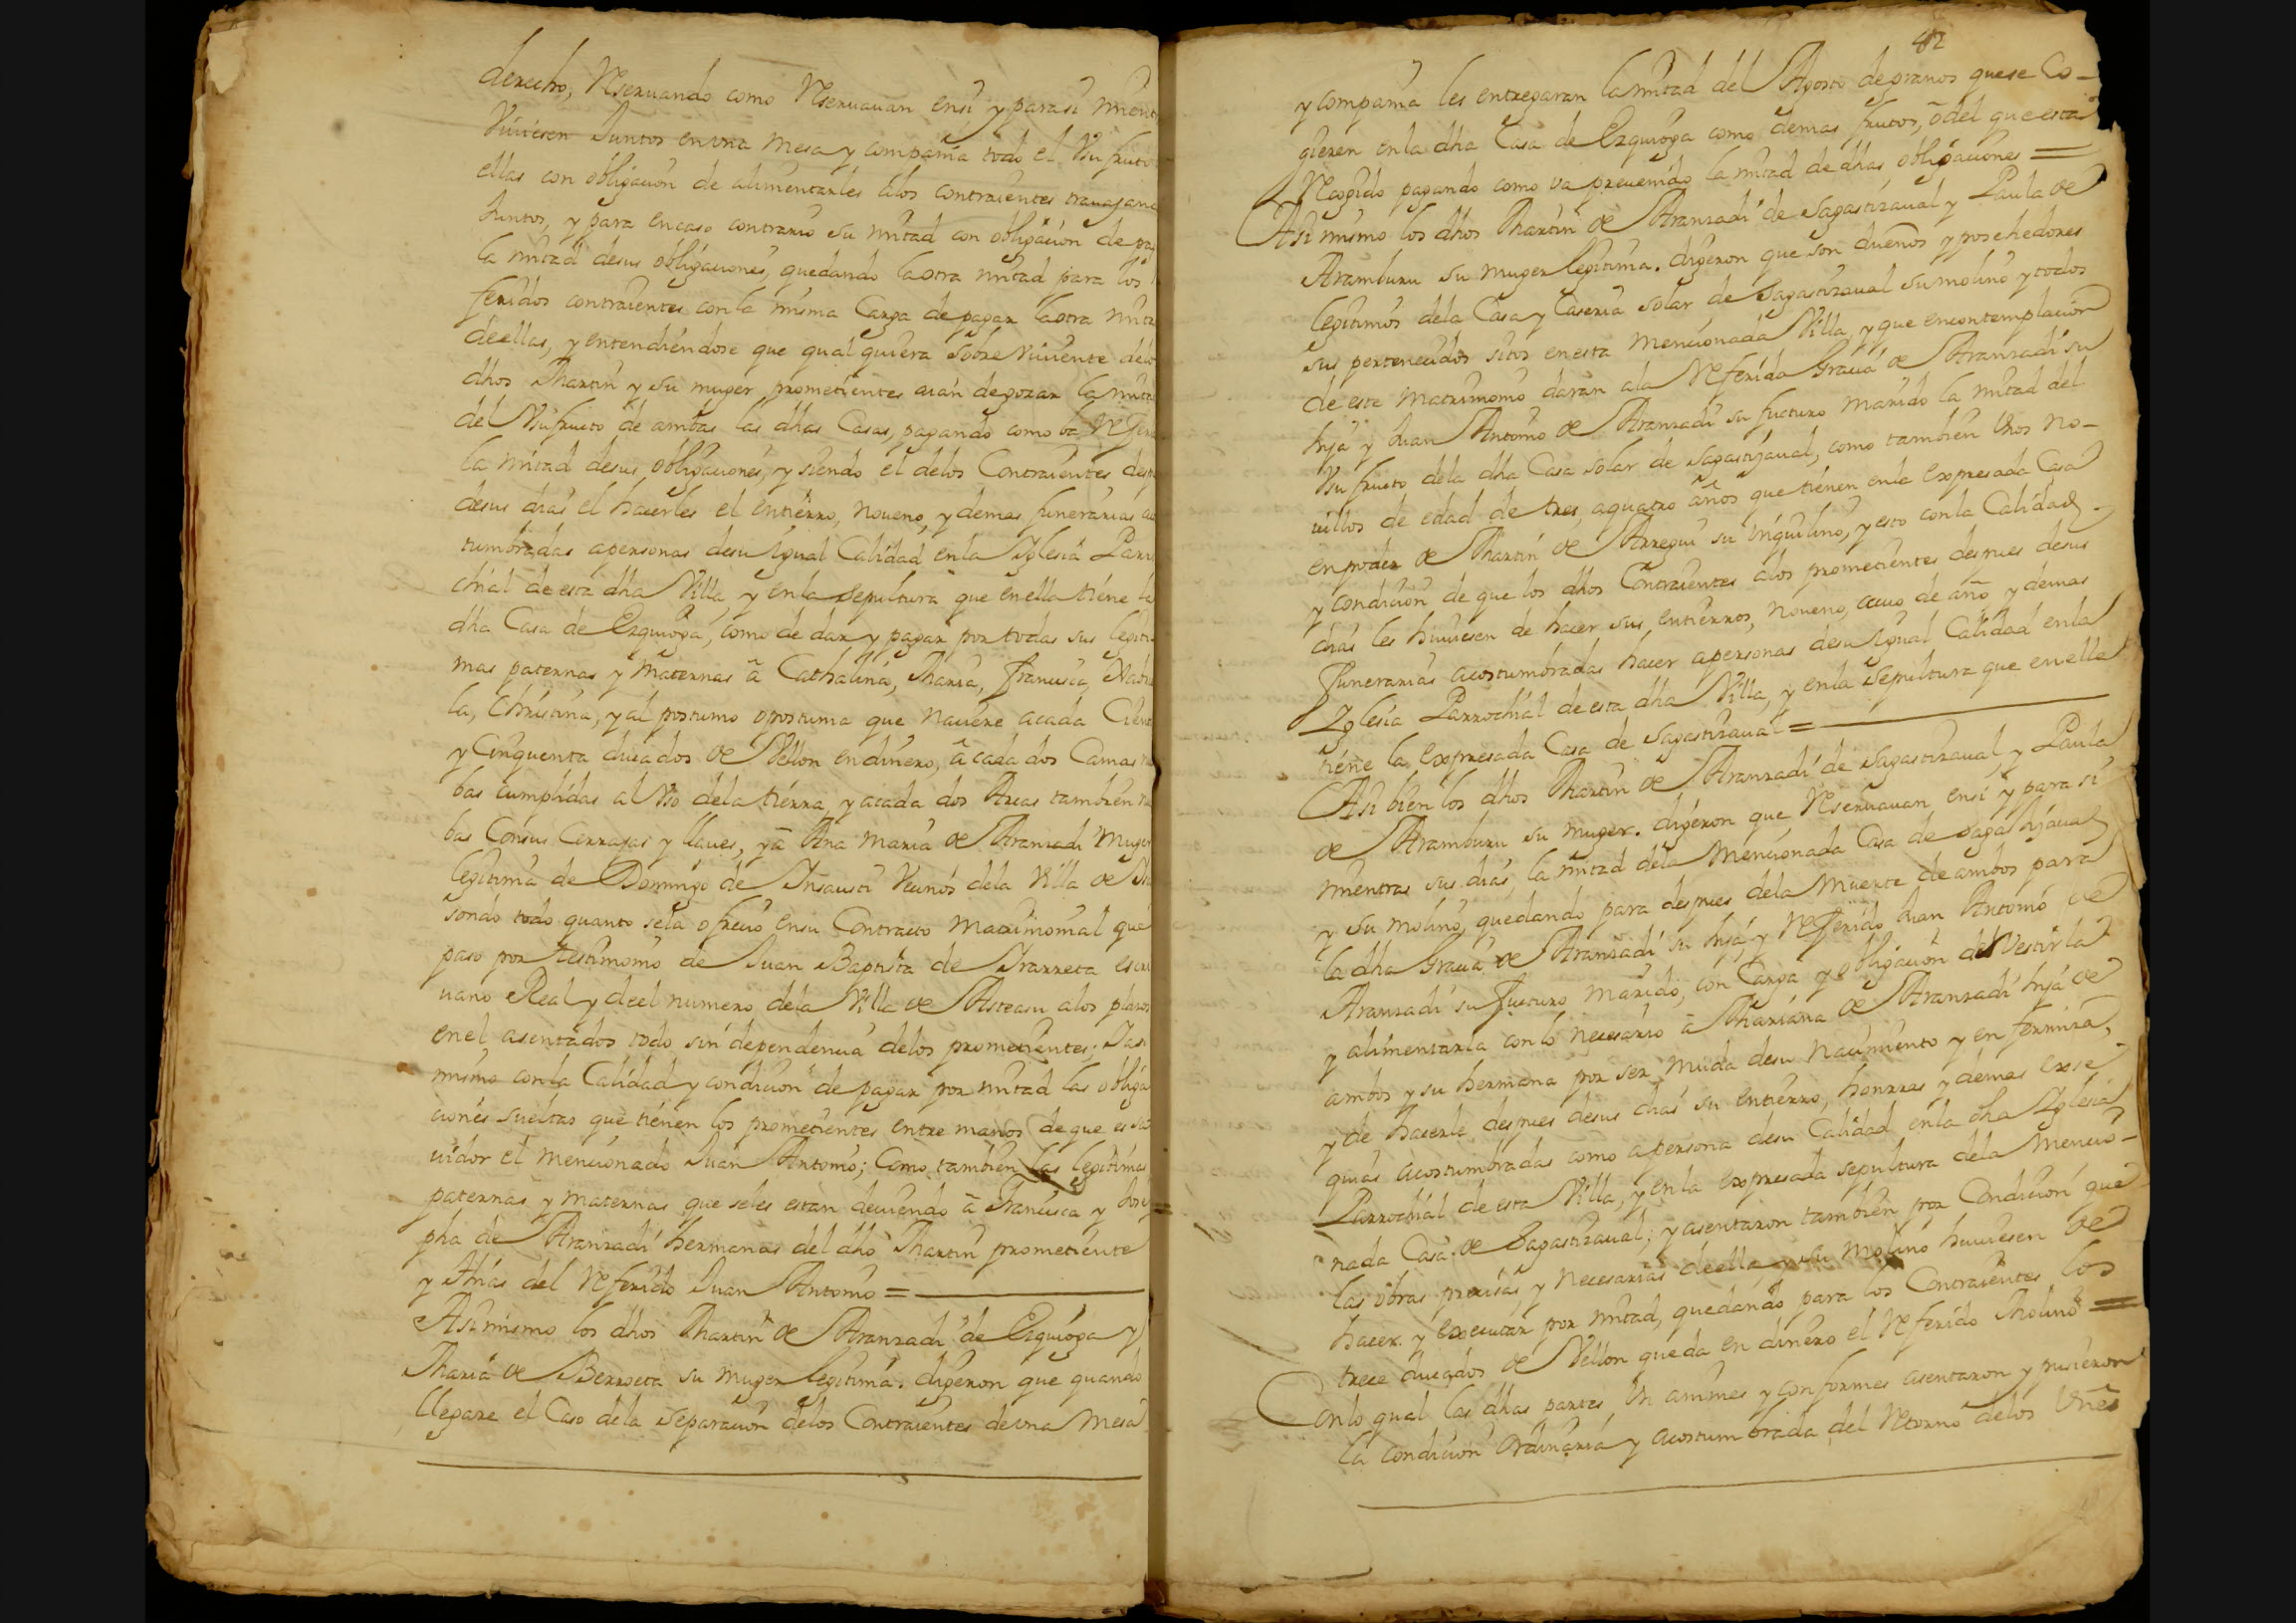 derecho, Reseruando como Reseruauan ensi y parasi mient
Viuiesen Juntos envna mesa y compañia todo el Vsufructo
ellas con obligacion de alimentarles alos contraientes trauajand
Juntos, y para encaso contrario su mitad con obligacion de pag
la mitad desus obligaciones, quedando laotra mitad para los
feridos contraientes con la misma Carga de pagar laotra mita
deellas, y entendiendose que qual quiera sobre viuiente delos
dhos Martin y su muger prometientes aian degozar la mita
del Vsufructo de ambas las dhas Casas, pagando como ba Referi
la mitad desus obligaciones, y siendo el delos Contraientes desp
desus dias el hacerles el entierro, noueno, y demas funerarias acos
tumbradas apersonas desu Igual Calidad enla Iglesia Parro
chial de esta dha Villa, y enla sepultura que enella tiene la
dha Casa de Ezquioga, como de dar y pagar por todas sus legiti
mas paternas y maternas â Cathalina, Maria, Francisca,
la, Christina, y al postumo opostuma que naciere acada Cient
y Cinquenta ducados de Vellon endinero, â cada dos Camas
bas cumplidas al vso dela tierra, y acada dos Arcas tambien
bas Consus Cerrajas y llaues, y â Ana Maria de Aranzadi Muger
legitima de Domingo de Insausti Vecinos dela Villa de
sondo todo quanto sela ofrecio ensu Contracto Matrimonial que
paso por testimonio de Juan Baptista de Irarreta escri
uano Real y deel numero dela Villa de Asteasu alos plazos
enel asentados todo sin dependencia delos prometientes; Iasi
mismo conla Calidad y condicion de pagar por mitad las obliga
ciones sueltas que tienen los prometientes entre manos de que es sa
uidor el mencionado Juan Antonio; Como tambien las legitimas
paternas y maternas que seles estan deuiendo â Francisca y Jose
pha de Aranzadi hermanas del dho Martin prometiente
y thias del Referido Juan Antonio =
Asimismo los dhos Martin de Aranzadi de Ezquioga y
Maria de Berroeta su muger legitima. digeron que quando
llegare el Caso dela separacion delos Contraientes devna Mesa
82
y compañia les entregaran la mitad del Agosto degranos quese Co-
gieren enla dha Casa de Ezquioga como demas frutos, ô del que esta
Recogido pagando como va preuenido la mitad de dhas obligaciones =
Asi mismo los dhos Martin de Aranzadi de Sagastizaual y Paula de
Aramburu su muger legitima. digeron que son dueños y posehedores
legitimos dela Casa y Caseria solar de Sagastizaual sumolino y todos
sus pertenecidos sitos enesta mencionada Villa, y que encontemplacion
de este Matrimonio daran ala Referida Gracia de Aranzadi su
hija y Juan Antonio de Aranzadi su futuro marido la mitad del
Vsufructo dela dha Casa solar de Sagastizaual, como tambien Vnos no-
uillos de edad de tres, aquatro años que tienen enla Expresada Casa
enpoder de Martin de Arregui su inquilino, y esto conla Calidad
y condicion de que los dhos Contraientes alos prometientes despues desus
dias les huuiesen de hacer sus entierros, noueno, cauo de año y demas
Funerarias acostumbradas hacer apersonas desu Igual Calidad enla
Iglesia Parrochial de esta dha Villa, y enla Sepultura que enella
tiene la Expresada Casa de Sagastizaual =
Asi bien los dhos Martin de Aranzadi de Sagastizaual, y Paula
de Aramburu su muger. digeron que Reseruauan ensi y para si
mientras sus dias, la mitad dela Mencionada Casa de Sagastizaual
y su molino, quedando para despues dela Muerte de ambos para
la dha Gracia de Aranzadi su hija y Referido Juan Antonio de
Aranzadi su Futuro Marido, con Carga y obligacion del Vestirla
y alimentarla conlo necesario â Mariana de Aranzadi hija de
ambos y su hermana por ser muda desu nacimiento y en fermiza,
y de hacerle despues desus dias su entierro, honrras y demas exse
quias acostumbradas como apersona desu Calidad enla dha Iglesia
Parrochial de esta Villa, y enla Expresada sepultura dela Mencio-
nada Casa de Sagastizaual; y asentaron tambien por Condicion que
las obras precisas y necesarias deella y su Molino huuiesen de
hacer y Executar por mitad, quedando para los Contraientes los
trece ducados de Vellon queda en dinero el Referido Molino =
Conlo qual las dhas partes Vn animes y conformes asentaron y pusieron
la condicion Ordinaria y acostumbrada del Retorno delos Vnês